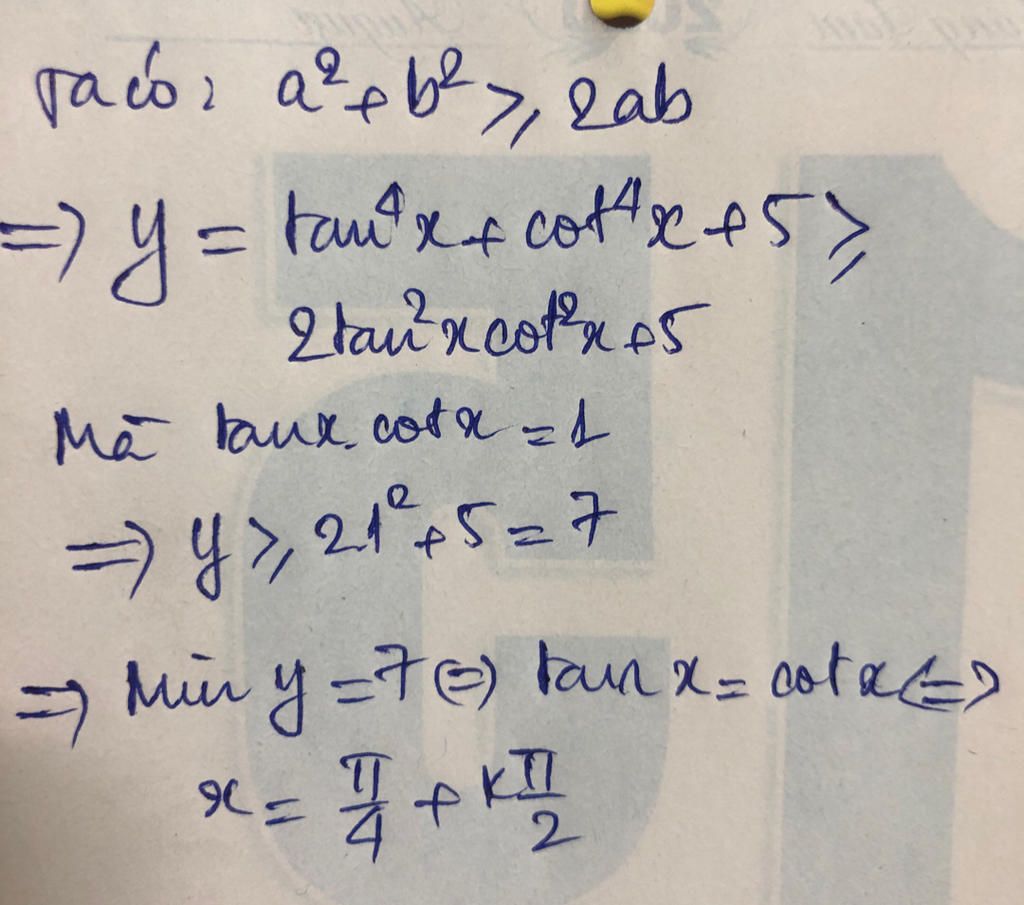 Ta có: a² + b² ≥ 2ab
=> y = tan⁴x + cot⁴x + 5 ≥
2tan²x cot²x + 5
Mà tanx. cotx = 1
=> y ≥ 2.1² + 5 = 7
=> Min y = 7 <=> tan x = cot x <=>
x = π/4 + kπ/2